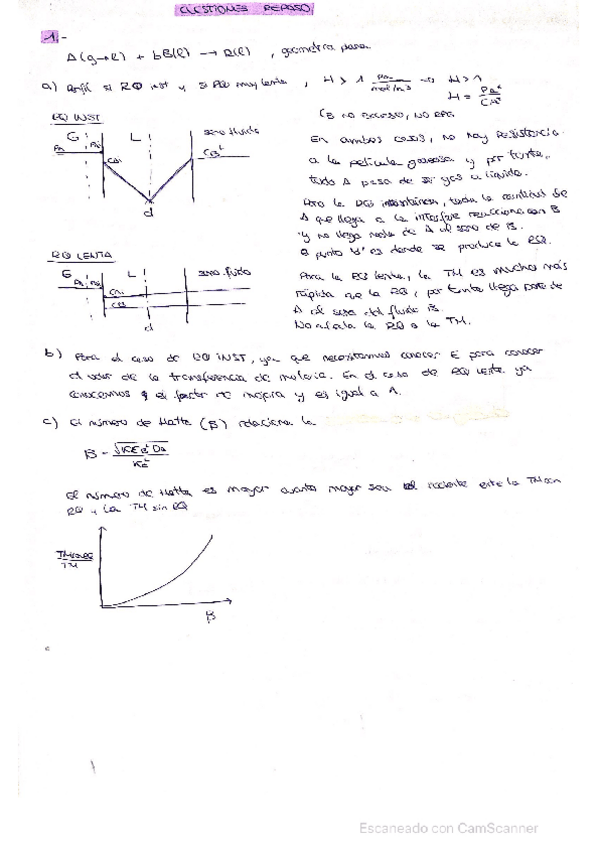 CUESTIONES REPASO
1.-
A(g→l) + bB(l) → R(l) , geometría plana
a) Perfil si RQ inst y si RQ muy lenta , H > 1 Pa/mol/m³ → H > 1
H = PAi/CAi
CB no exceso, no
RQ INST
G L seno fluido
PA PAi CAi CBL
d
En ambos casos, no hay resistencia
a la película gaseosa y por tanto,
todo A pasa de ser gas a líquido.
Para la RQ instantánea, toda la cantidad de
A que llega a la interfase reacciona con B
y no llega nada de A al seno de B.
El punto 'd' es donde se produce la RQ.
RQ LENTA
G L seno fluido
PA PAi CAi
CB
d
Para la RQ lenta, la TM es mucho más
rápida que la RQ, por tanto llega parte de
A al seno del fluido B.
No afecta la RQ a la TM.
b) Para el caso de RQ INST, ya que necesitamos conocer E para conocer
el valor de la transferencia de materia. En el caso de RQ lenta ya
conocemos el factor de mejora y es igual a 1.
c) El número de Hatta (B) relaciona la
El número de Hatta es mayor cuanto mayor sea el cociente entre la TM con
RQ y la TM sin RQ
TM
B
Escaneado con CamScanner